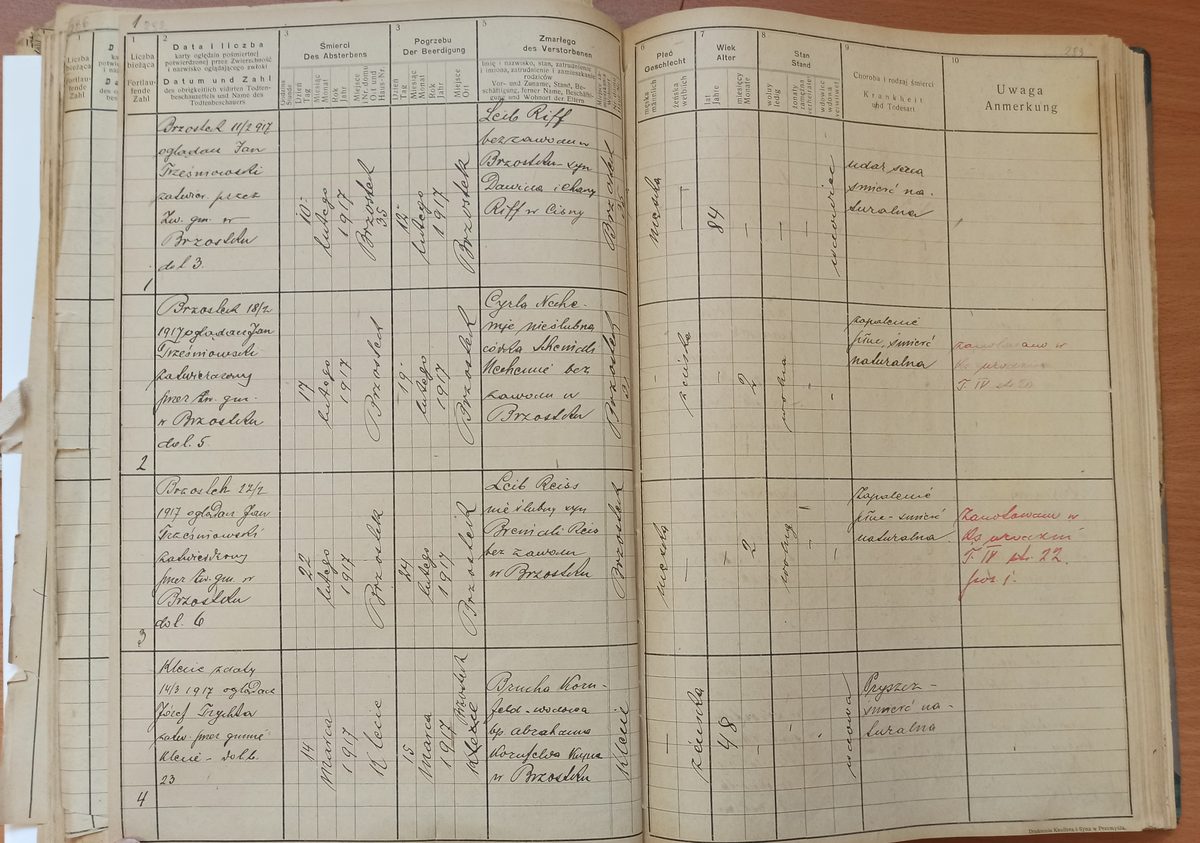 1
1
Liczba
bieżąca
Fortlau-
fende
Zahl
2
Data i liczba
karty oględzin pośmiertnej
potwierdzonej przez Zwierzchność
i nazwisko oglądającego zwłoki
Datum und Zahl
des obrigkeitlich vidirten Todten-
beschauzettels und Name des
Todtenbeschauers
3
Śmierci
Des Absterbens
Godzina
Stunde
Dzień
Tag
Miesiąc
Monat
Rok
Jahr
Miejsce
Nr. domu
Ort und
Haus-Nr.
3
Pogrzebu
Der Beerdigung
Dzień
Tag
Miesiąc
Monat
Rok
Jahr
Miejsce
Ort
5
Zmarłego
des Verstorbenen
Imię i nazwisko, stan, zatrudnienie
i imiona, zatrudnienie i zamieszkanie
rodziców
Vor- und Zuname, Stand, Be-
schäftigung, ferner Name, Beschäfti-
gung und Wohnort der Eltern
6
Płeć
Geschlecht
męska
männlich
żeńska
weiblich
7
Wiek
Alter
lat
Jahre
miesięcy
Monate
8
Stan
Stand
wolny
ledig
żonaty
zamężna
verheiratet
wdowiec
wdowa
verwitwet
9
Choroba i rodzaj śmierci
Krankheit
und Todesart
10
Uwaga
Anmerkung
283
Brzostek 11/2 917
oglądał Jan
Trześniowski
zatwier. przez
Zw. gm. w
Brzostku
dol 3.
1
10
lutego
1917
Brzostek
35
12
lutego
1917
Brzostek
Leib Riff
bez zawodu w
Brzostku syn
Dawida i Chany
Riff w Cisny
Brzostek
35
męska
—
84
—
—
—
wdowiec
udar serca
śmierć na-
turalna
Brzostek 18/2
1917 oglądał Jan
Trześniowski
zatwierdzony
przez Zw. gm.
w Brzostku
dol. 5.
2
17
lutego
1917
Brzostek
19
lutego
1917
Brzostek
Cyrla Neche-
mje nieślubna
córka Scheindli
Nechemie bez
zawodu w
Brzostku
Brzostek
—
żeńska
—
2
wolna
zapalenie
płuc, śmierć
naturalna
Zanotowano w
Ks urodzin
T IV str 20
Brzostek 22/2
1917 oglądał Jan
Trześniowski
zatwierdzony
przez Zw. gm. w
Brzostku
dol. 6
3
22
lutego
1917
Brzostek
24
lutego
1917
Brzostek
Leib Reiss
nieślubny syn
Breindli Reis
bez zawodu
w Brzostku
Brzostek
męska
—
—
2
wolny
zapalenie
płuc - śmierć
naturalna
Zanotowano w
Ks urodzin
T IV str. 22.
poz 1.
Klecie z daty
14/3 1917 oglądał
Józef Trychta
zatw. przez gminę
Klecie - dol. l.
23
4
14
Marca
1917
Klecie
15
Marca
1917
Klecie
Brzostek
Brucha Korn-
feld - wdowa
po Abrahamie
Kornfeld Kupca
w Brzostku
Klecie
—
żeńska
48
—
wdowa
Pryszcz -
śmierć na-
turalna
Drukarnia Knollera i Syna w Przemyślu.